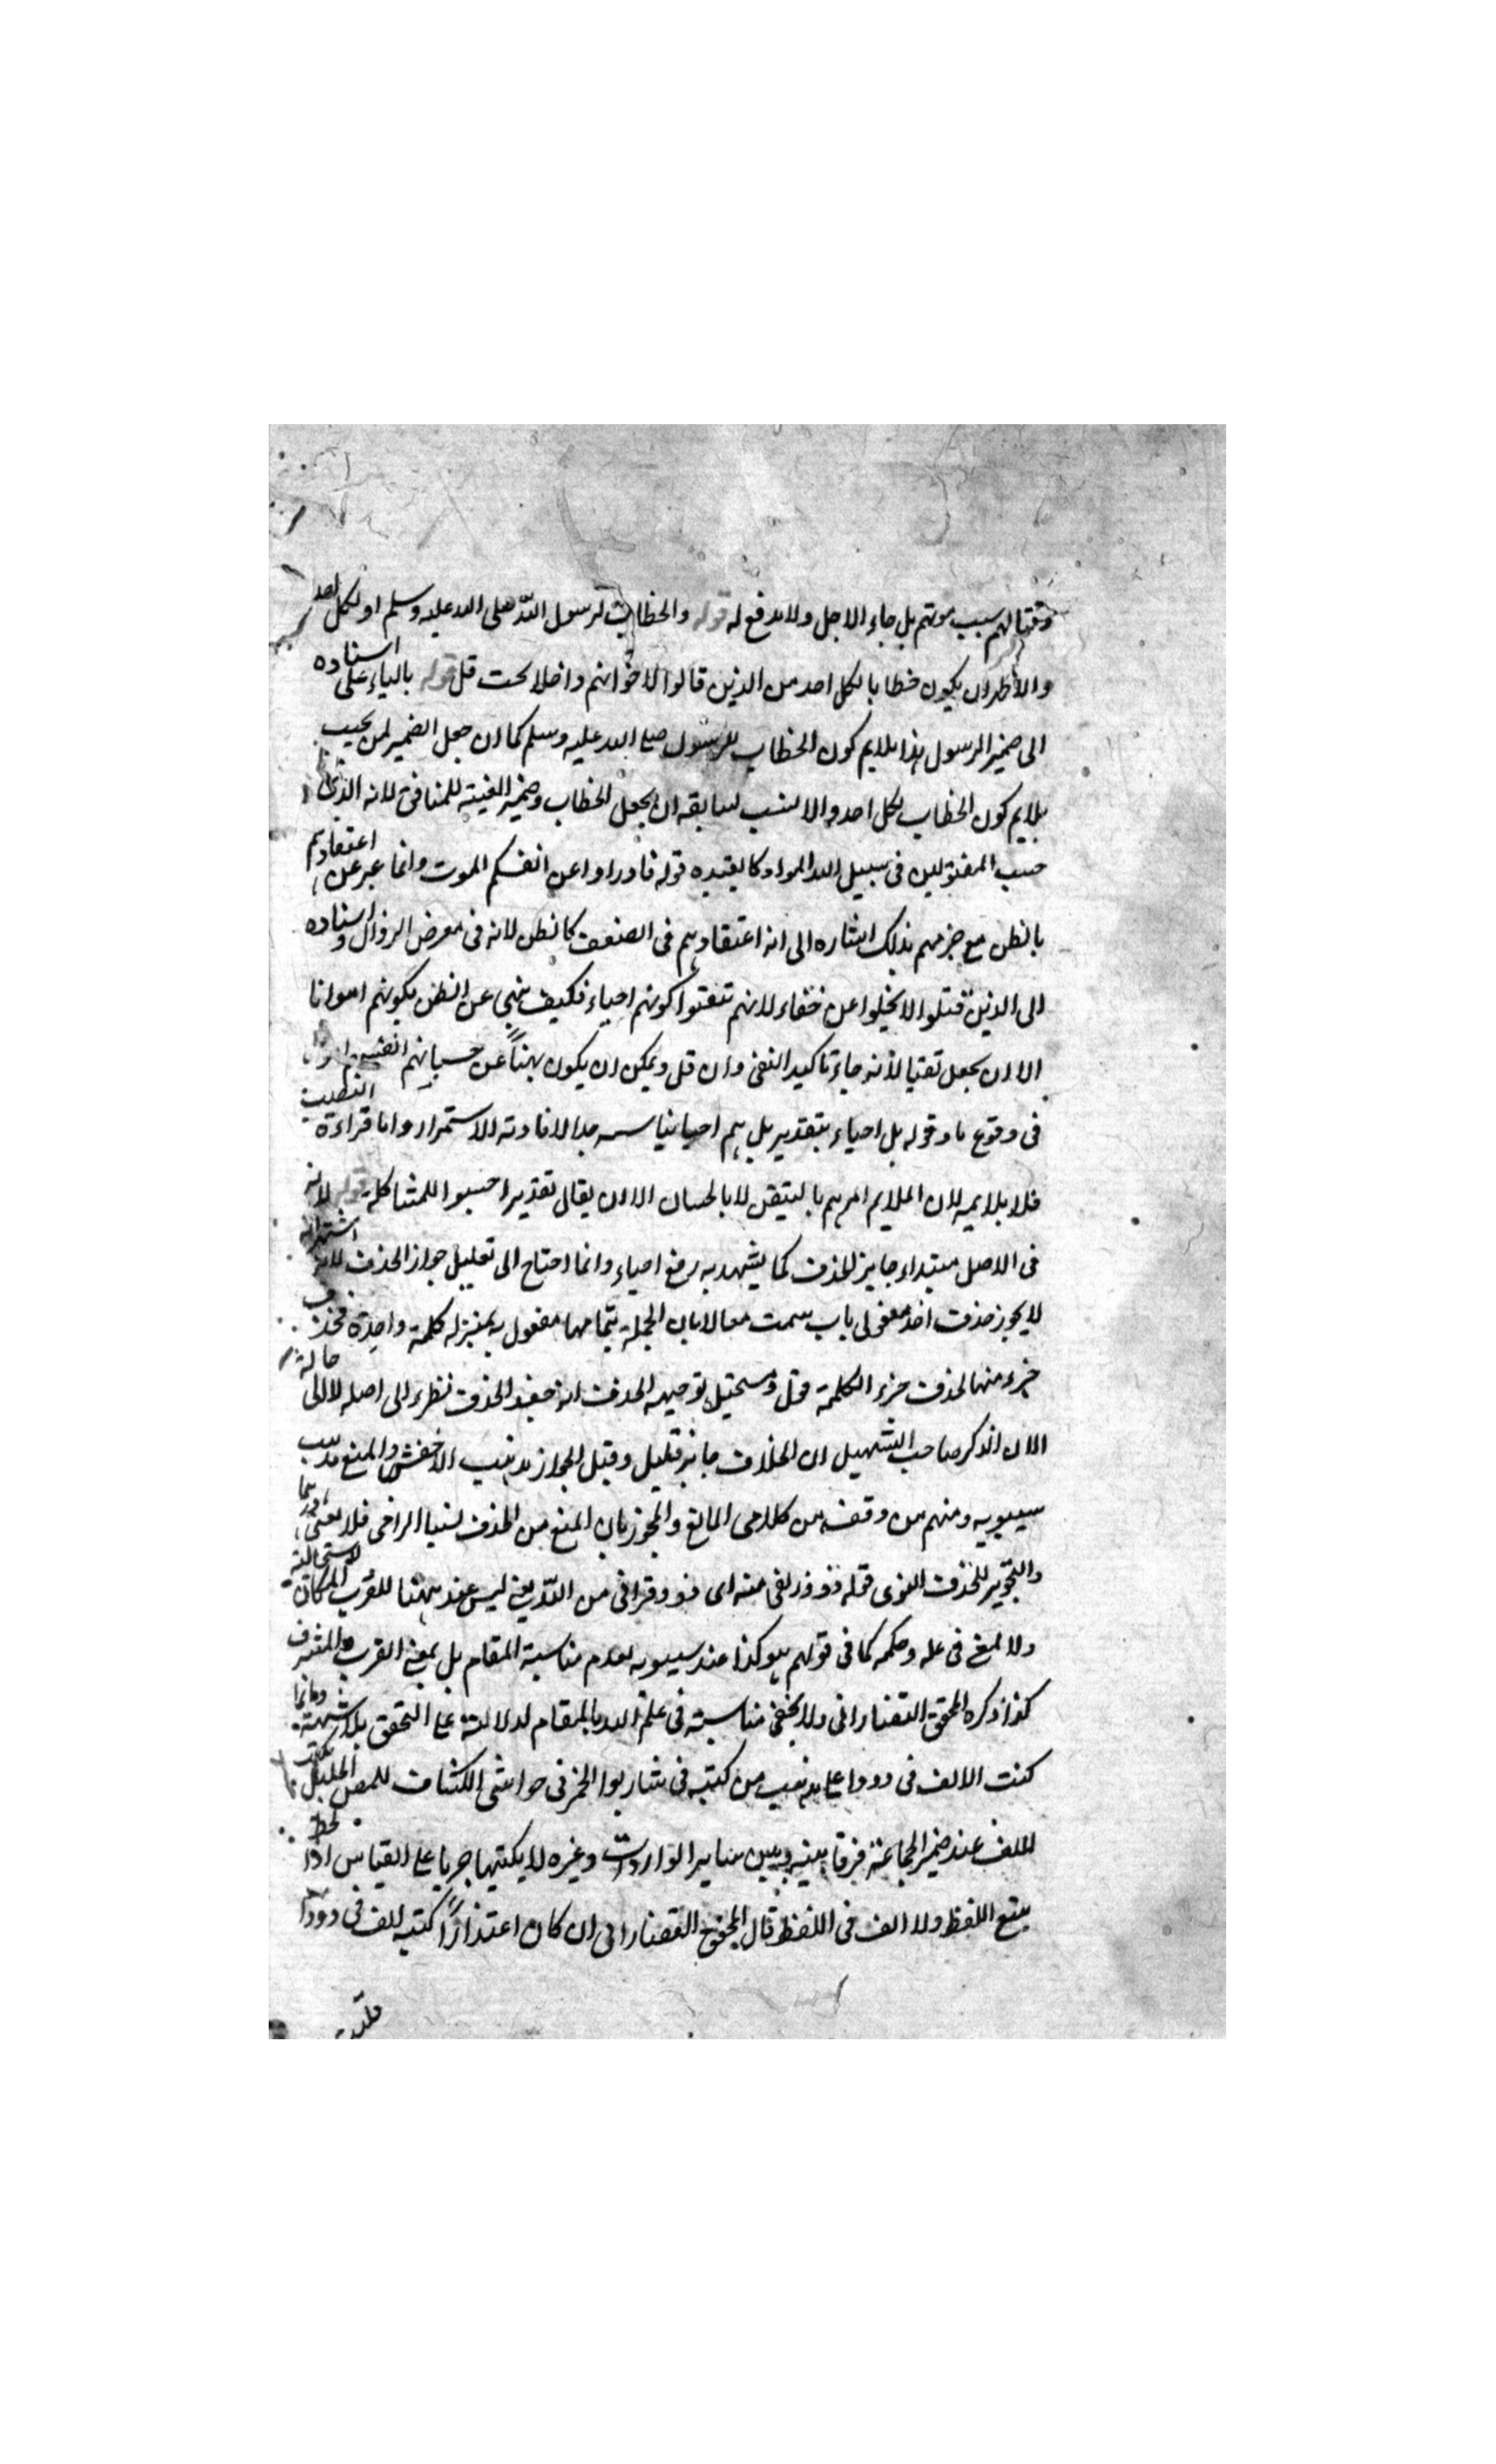 وقتالهم سبب موتهم بل جاء الاجل ولا مدفع له قوله والخطاب لرسول الله صلى الله عليه وسلم او لكل احد
والاظهر ان يكون خطابا لكل احد من الذين قالوا لاخوانهم داخلا تحت قل قوله بالياء على اسناده
الى ضمير الرسول هذا يلايم كون الخطاب للرسول صلى الله عليه وسلم كما ان جعل الضمير لمن يحسب
يلايم كون الخطاب لكل احد والانسب لسابقه ان يجعل الخطاب وضمير الغيبة للمنافق لانه الذى
حسب المقتولين فى سبيل الله امواتا كما يفيده قوله فادراوا عن انفسكم الموت وانما عبر عن اعتقادهم
بالظن مع جزمهم بذلك اشاره الى ان اعتقادهم فى الضعف كالظن لانه فى معرض الزوال واسناده
الى الذين قتلوا لا يخلوا عن خفاء لانهم تيقنوا كونهم احياء فكيف ينهى عن الظن بكونهم امواتا
الا ان يجعل نفيا لانه جاء تاكيد النفى وان قل ويمكن ان يكون نهيًا عن حسبانهم انفسهم امواتا
فى وقوع ما وقوله بل احياء بتقدير بل هم احياء الافادته الاستمرار واما قراءة النصب
فلا يلايمه لان الملايم امرهم باليقين لا بالحسبان الا ان يقال تقدير احسبوا للمشاكلة قوله لانه
فى الاصل مبتداء جايز الحذف كما يشهد به رفع احياء وانما احتاج الى تعليل جواز الحذف لانه اشتهر انه
لا يجوز حذف احد مفعولى باب حسبت معللا بان الجملة بتمامها مفعول به بمنزله كلمة واحدة فحذف
جزء منها كحذف جزء الكلمة توجيه الحذف انه حذف نظرا الى اصله لا الى حاله
الان ذكر صاحب التسهيل ان الحذف جايز قليل وقيل الجواز مذهب الاخفش والمنع مذهب
سيبويه ومنهم من وفق بين كلامى المانع والمجوز بان المنع من الحذف نسيا
والتجويز للحذف المنوى قوله ذوو زلفى منه اى ذوو قربى من الله يعنى ليس عند ههنا للقرب المكانى لاستحالته
ولا لمعنى فى علمه وحكمه كما فى قولهم هو كذا عند سيبويه لعدم مناسبة المقام بل بمعنى القرب والشرف
كذا ذكره المحقق التفتازانى ولا يخفى مناسبته فى علم الله بالمقام لدلالته على التحقق بلا شبهة وانما
كتبت الالف فى ذووا على مذهب من كتبه فى شاربوا الخمر فى حواشى الكشاف للمص
الالف عند ضمير الجماعة فرقا بينه وبين ساير الواوات وغيره لا يكتبها جريا على القياس اذ الخط
يتبع اللفظ ولا الف فى اللفظ قال المحقق التفتازانى ان كان اعتذارًا لكتبه الالف فى ذووا